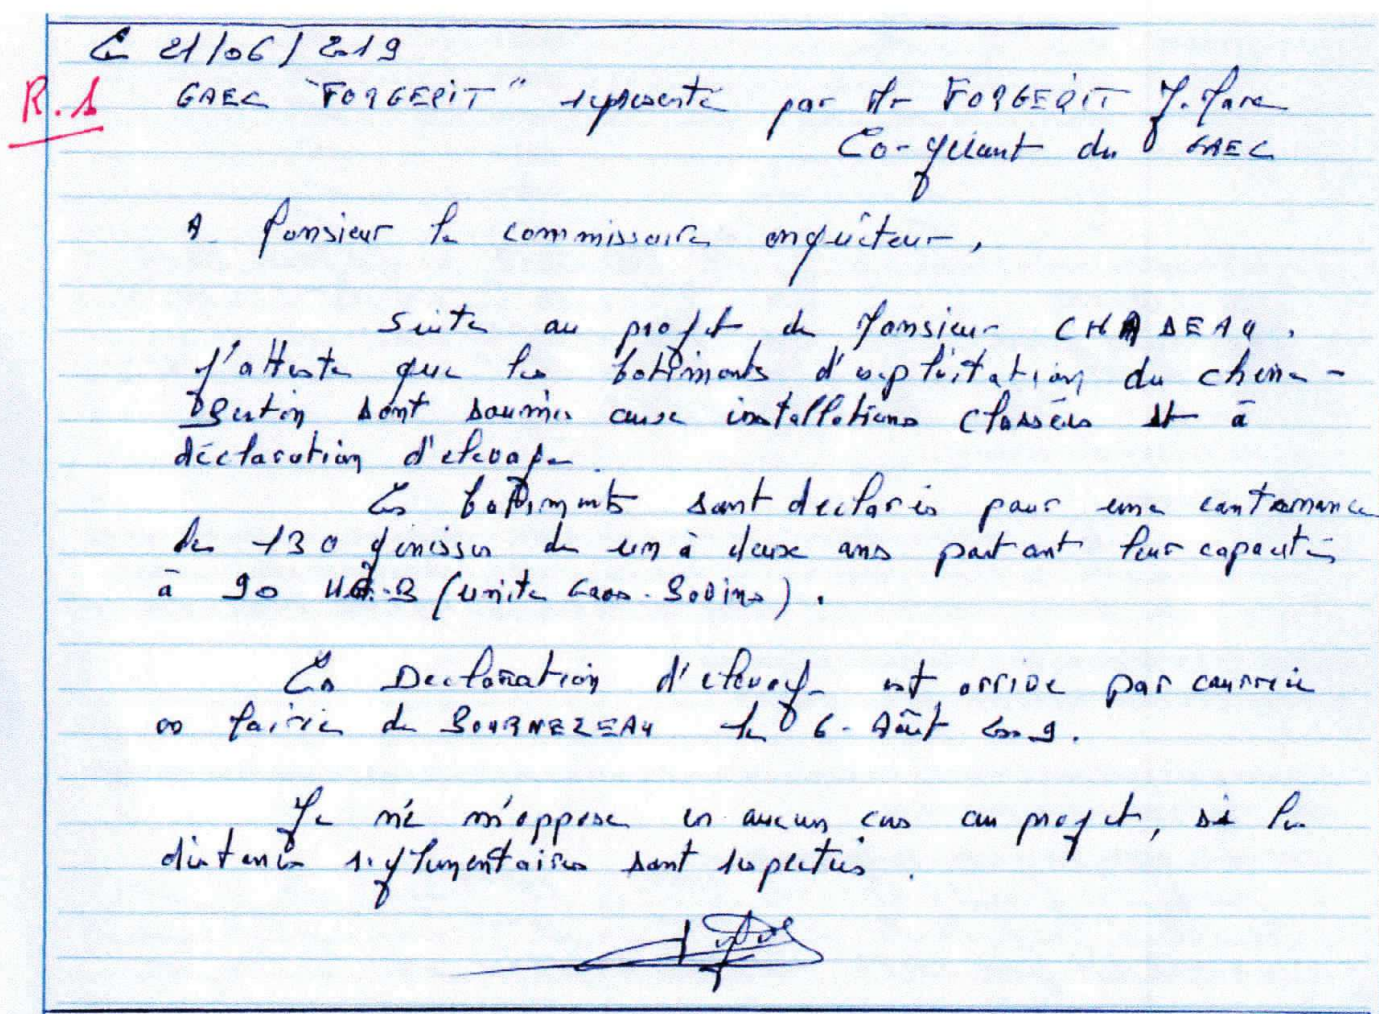 Le 21/06/2019
R.1 GAEC "FORGERIT" représenté par Mr FORGERIT J. Marc
Co-gérant du GAEC
A Monsieur le commissaire enquêteur,
Suite au projet de Monsieur CHADEAU.
J'atteste que les batiments d'exploitation du chene-
Bertin sont soumis aux installations classées et à
déclaration d'elevage.
Les batiments sont declarés pour une contenance
de 130 génisses de un à deux ans portant leur capacité
à 90 U.G.B (unite Gros-Bovins).
La Declaration d'elevage est arrivé par courrier
en Mairie de BOURNEZEAU le 6 Août 2009.
Je me m'oppose en aucun cas au projet, si les
distances réglementaires sont respectées.